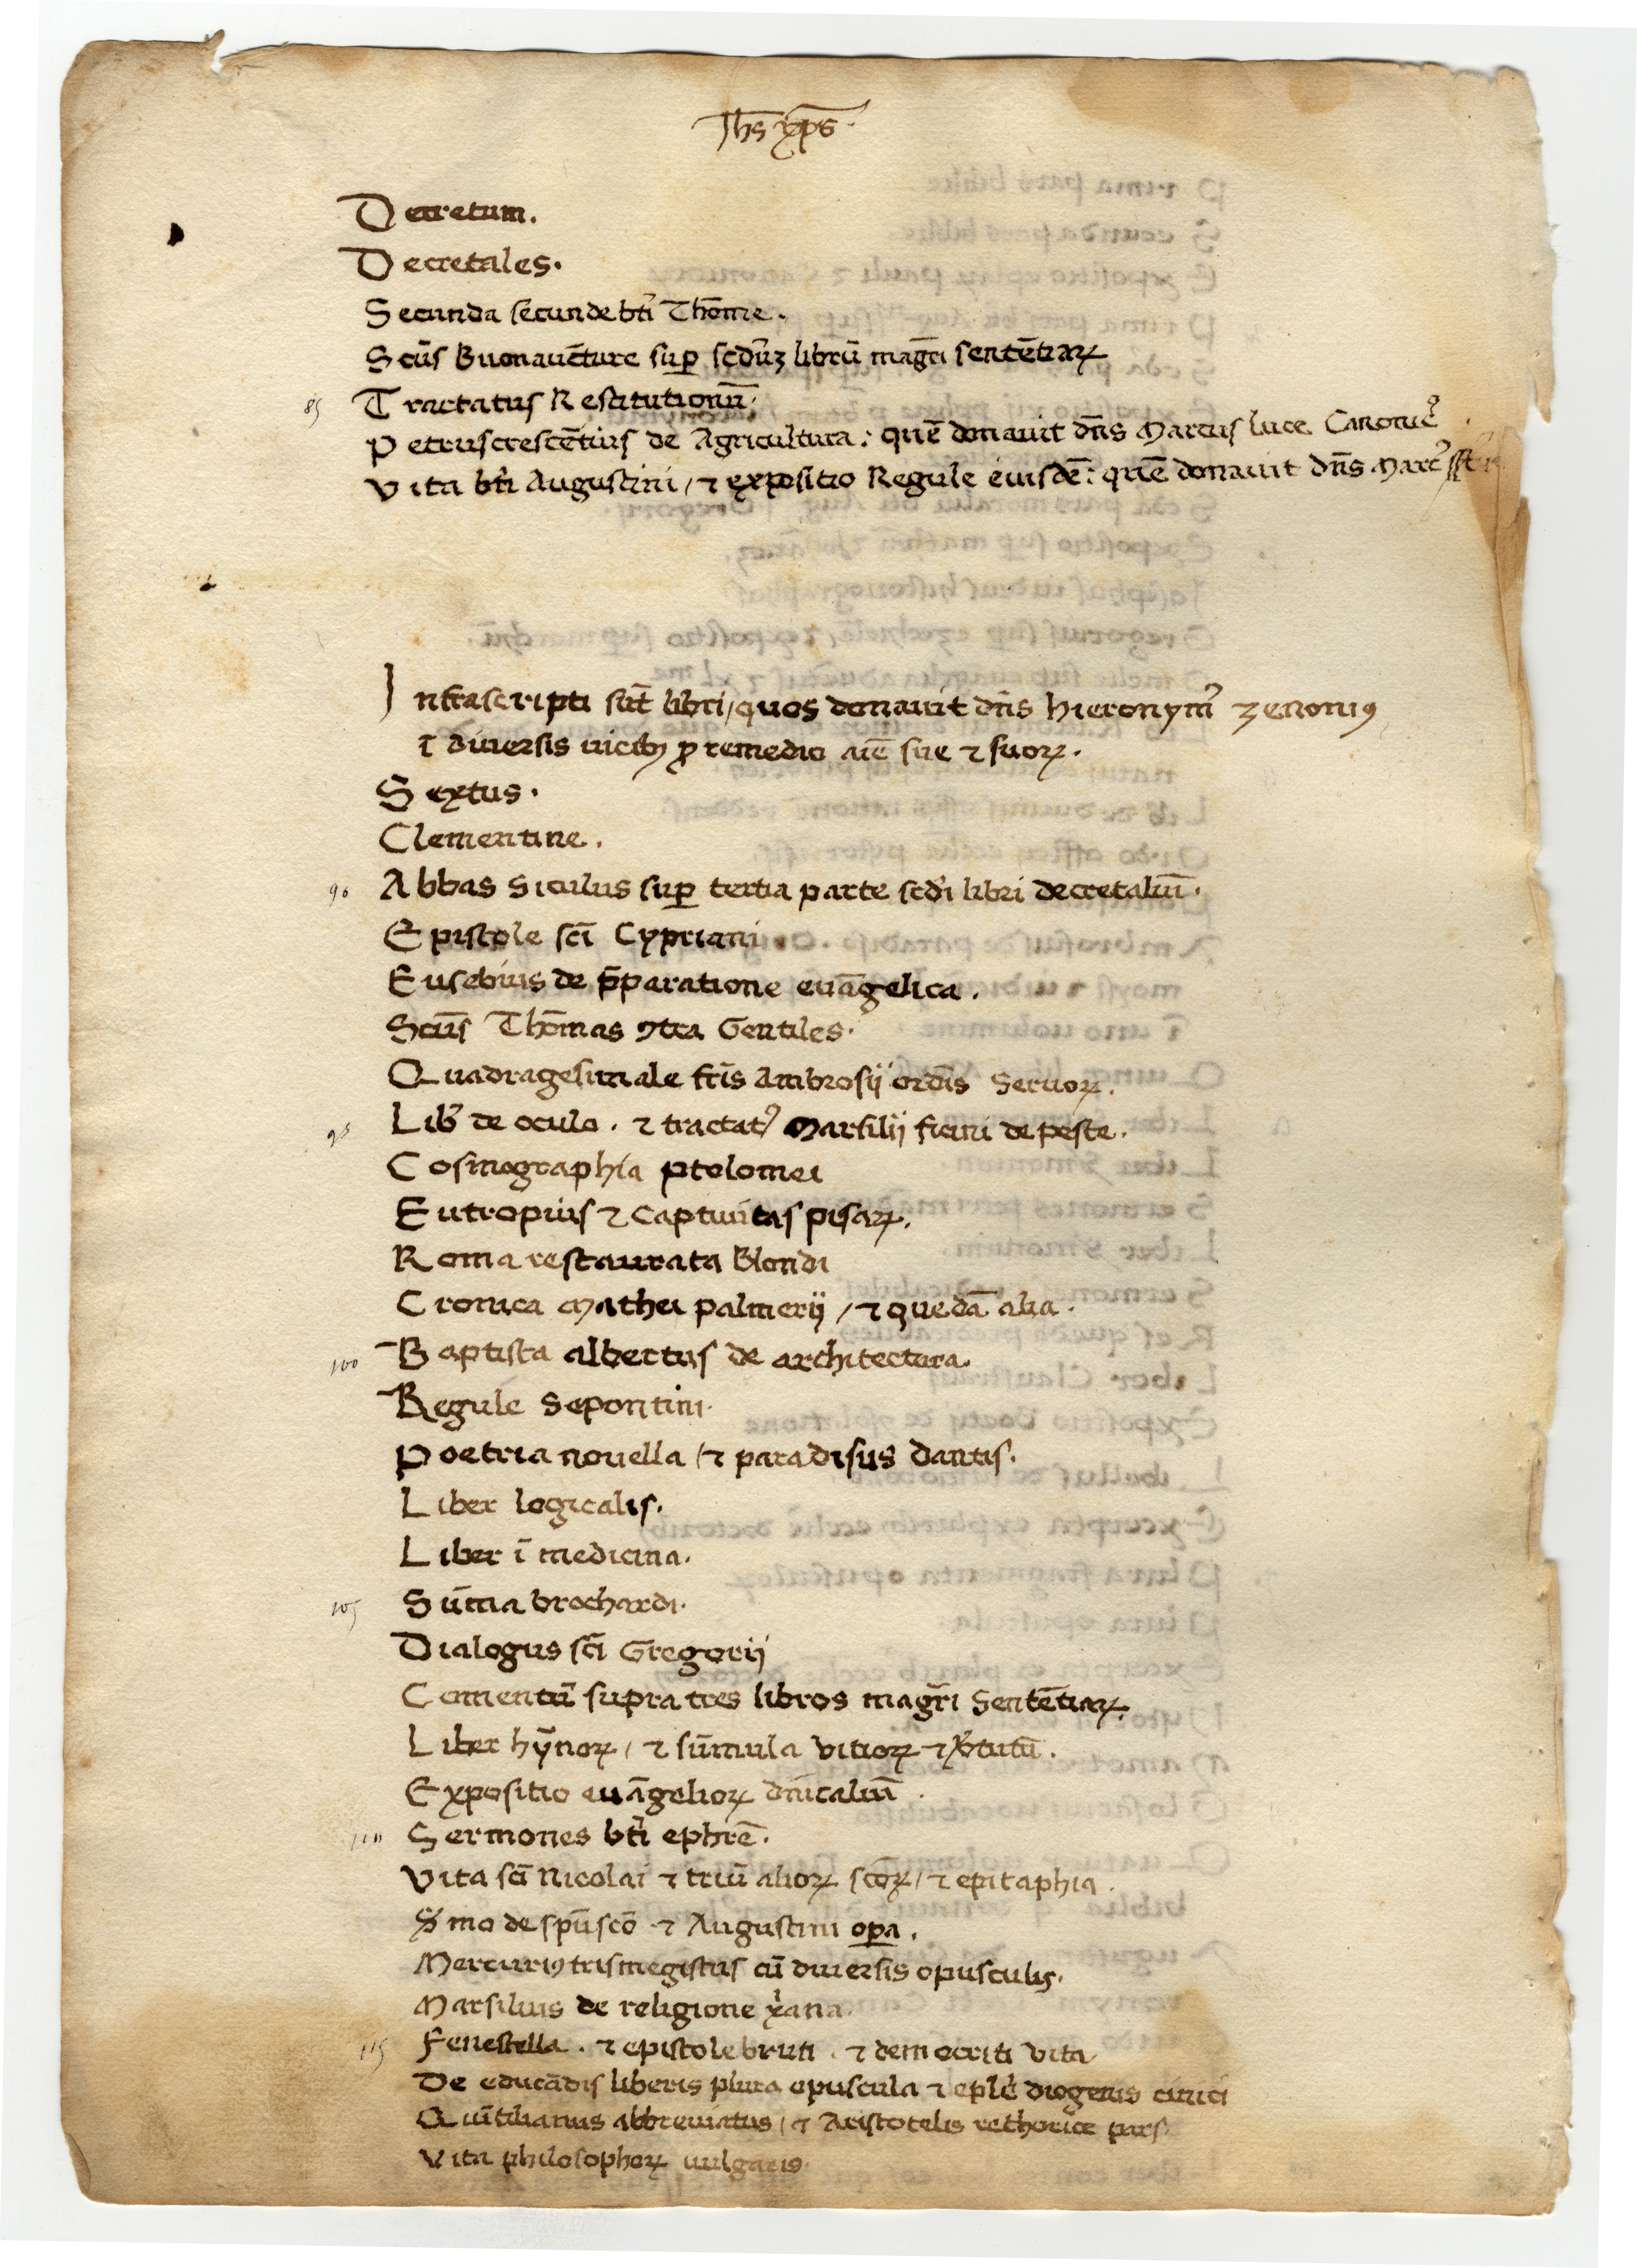 Jhs xps.
Decretum.
Decretales.
Secunda secunde bti Thome.
Scus Buonauēture sup scduȝ librū magri sentētiaꝝ
85 Tractatus Restitutionū.
Petrus crescētius de Agricultura: quē donauit dn̄s Marcus luce Canonic9
Vita bti Augustini / ⁊ expositio Regule eiusdē: quē donauit dn̄s Marc9
Infrascripti sūt libri / quos donauit dn̄s Hieronym9 zenoni9
ī diuersis uicib9 ꝓ remedio aīe sue ⁊ suoꝝ.
Sextus.
Clementine.
90 Abbas Siculus sup tertia parte scdi libri decretaliū.
Epistole sci Cypriani.
Eusebius de p̄paratione euāgelica.
Scus Thomas ꝯtra Gentiles.
Quadragesimale fris Ambrosij ordīs Seruoꝝ.
95 Lib de oculo. ⁊ tractat9 Marsilij ficini de peste.
Cosmographia ptolomei
Eutropius ⁊ captiuitas pisaꝝ.
Roma restaurata Blondi
Cronica Mathei palmerij / ⁊ quedā alia.
100 Baptista albertus de architectura.
Regule Sepontini.
Poetria nouella / ⁊ paradisus dantis.
Liber logicalis.
Liber ī medicina.
105 Sūma brochardi.
Dialogus sci Gregorij
Comentū supra tres libros magri Sentētiaꝝ.
Liber hȳnoꝝ / ⁊ sūmula vitioꝝ ⁊ v̾tutū.
Expositio euāgelioꝝ dn̄icaliū.
110 Sermones bti ephrē.
Vita sci Nicolai ⁊ triū alioꝝ scoꝝ / ⁊ epitaphia.
Smo de spū sco ⁊ Augustini opa.
Mercuri9 trismegistus cū diuersis opusculis.
Marsilius de religione xana.
115 Fenestella. ⁊ epistole bruti. ⁊ democriti vita
De educādis liberis plura opuscula ⁊ eple diogenis cinici
Quītilianus abbreuiatus / ⁊ Aristotelis rethorice pars
Vita philosophoꝝ uulgaris.